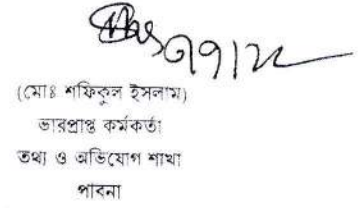 (মোঃ শফিকুল ইসলাম)
ভারপ্রাপ্ত কর্মকর্তা
তথ্য ও অভিযোগ শাখা
পাবনা